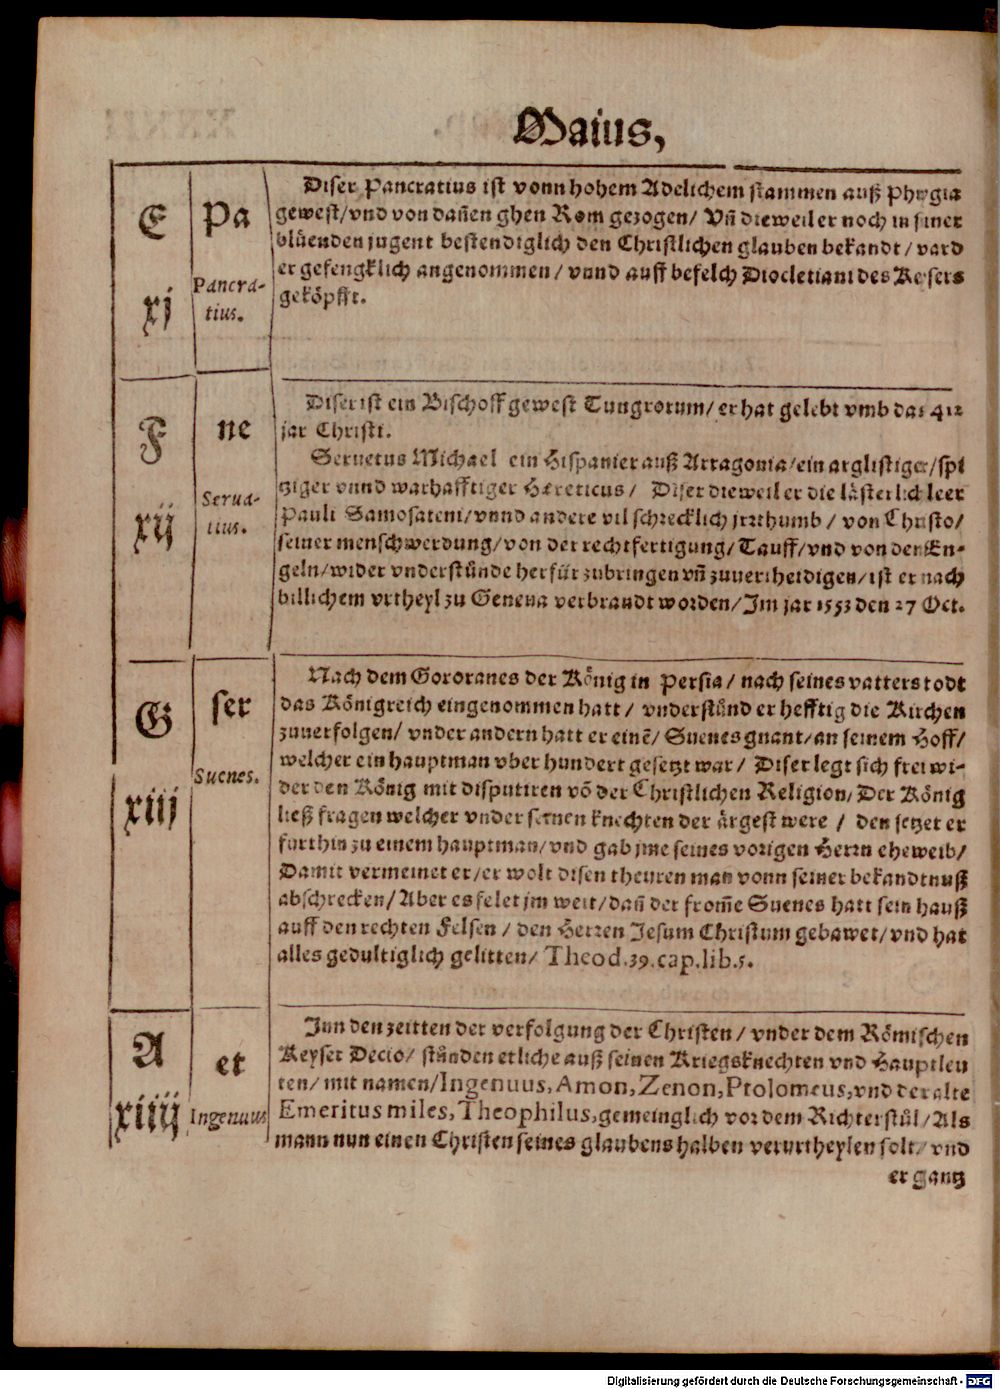 Maius,
E
xj
Pa
Pancra-
tius.
Diser Pancratius ist vonn hohem Adelichem stammen auß Phrygia
gewest/vnd von dañen ghen Rom gezogen/ Vñ dieweil er noch in siner
blüenden jugent bestendiglich den Christlichen glauben bekandt/ vard
er gefengklich angenommen/ vnnd auff befelch Diocletiani des Keysers
geköpfft.
F
xij
ne
Serua-
tius.
Diser ist ein Bischoff gewest Tungrorum/ er hat gelebt vmb das 412
jar Christi.
Seruetus Michael ein Hispanier auß Arragonia/ein arglistiger/spi
tziger vnnd warhafftiger Hæreticus/ Diser dieweil er die lästerlich leer
Pauli Samosateni/vnnd andere vil schrecklich jrrthumb/ von Christo/
seiner menschwerdung/von der rechtfertigung/Tauff/vnd von den En-
geln/wider vnderstünde herfür zubringen vñ zuuertheidigen/ist er nach
billichem vrtheyl zu Geneua verbrandt worden/Im jar 1553 den 27 Oct.
G
xiij
ser
Suenes.
Nach dem Gororanes der König in Persia/ nach seines vatters todt
das Königreich eingenommen hatt/ vnderstünd er hefftig die Kirchen
zuuerfolgen/ vnder andern hatt er einē/ Suenes gnant/an seinem Hoff/
welcher ein hauptman vber hundert gesetzt war/ Diser legt sich frei wi-
der den König mit disputiren võ der Christlichen Religion/Der König
ließ fragen welcher vnder seinen knechten der ärgest were/ den setzet er
furthin zu einem hauptman/vnd gab jme seines vorigen Herrn eheweib/
Damit vermeinet er/er wolt disen theuren man vonn seiner bekandtnuß
abschrecken/Aber es felet jm weit/dañ der from̃e Suenes hatt sein hauß
auff den rechten Felsen/ den Herren Jesum Christum gebawet/vnd hat
alles gedultiglich gelitten/ Theod.39.cap.lib.5.
A
xiiij
et
Ingenuus
Jnn den zeitten der verfolgung der Christen/ vnder dem Römischen
Keyser Decio/ stünden etliche auß seinen Kriegsknechten vnd Hauptleu
ten/ mit namen/Ingenuus, Amon, Zenon, Ptolomeus,vnd der alte
Emeritus miles, Theophilus,gemeinglich vor dem Richterstůl/Als
mann nun einen Christen seines glaubens halben verurtheylen solt/ vnd
er gantz
Digitalisierung gefördert durch die Deutsche Forschungsgemeinschaft - DFG